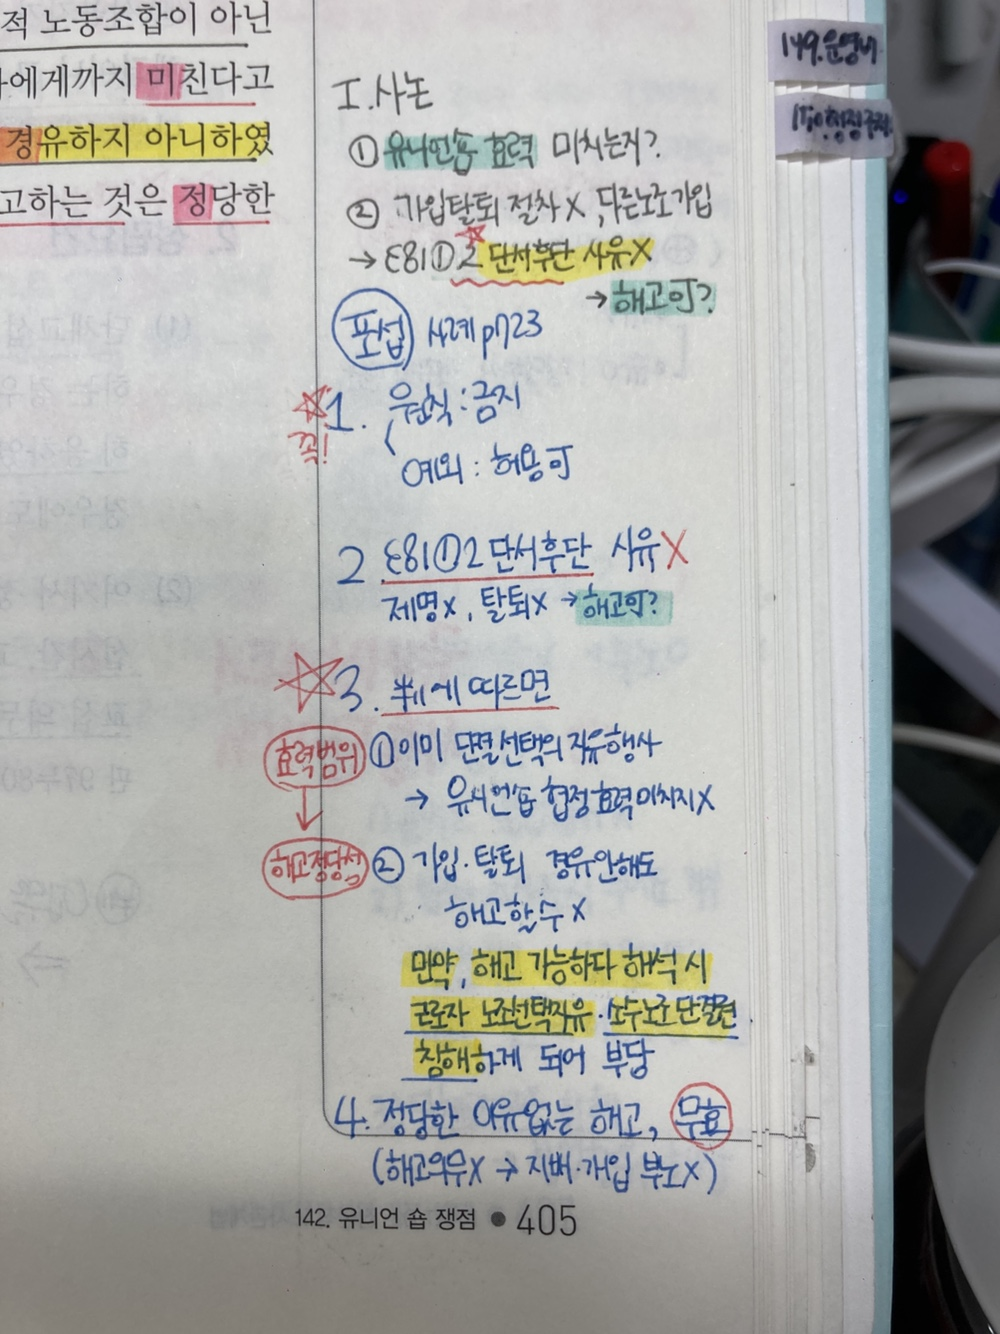 적 노동조합이 아닌
에게까지 미친다고
경유하지 아니하였
고하는 것은 정당한
149.운영비
I.사논
① 유니언숍 효력 미치는지?
② 가입탈퇴 절차X, 다른노조가입
→ ε81①2 단서후단 사유X
→ 해고可?
포섭 사례p723
꼭! 1. 원칙:금지
예외 : 허용可
2 ε81①2 단서후단 사유X
제명X, 탈퇴X → 해고可?
3. 判에 따르면
효력범위 ① 이미 단결선택의 자유행사
→ 유니언숍 협정효력 미치지X
해고정당성 ② 가입·탈퇴 경유안해도
해고할 수 X
만약, 해고 가능하다 해석 시
근로자 노조선택자유·소수노조 단결권
침해하게 되어 부당
4. 정당한 이유없는 해고, 무효
(해고의무X → 지배·개입 부노X)
142. 유니언 숍 쟁점 ● 405